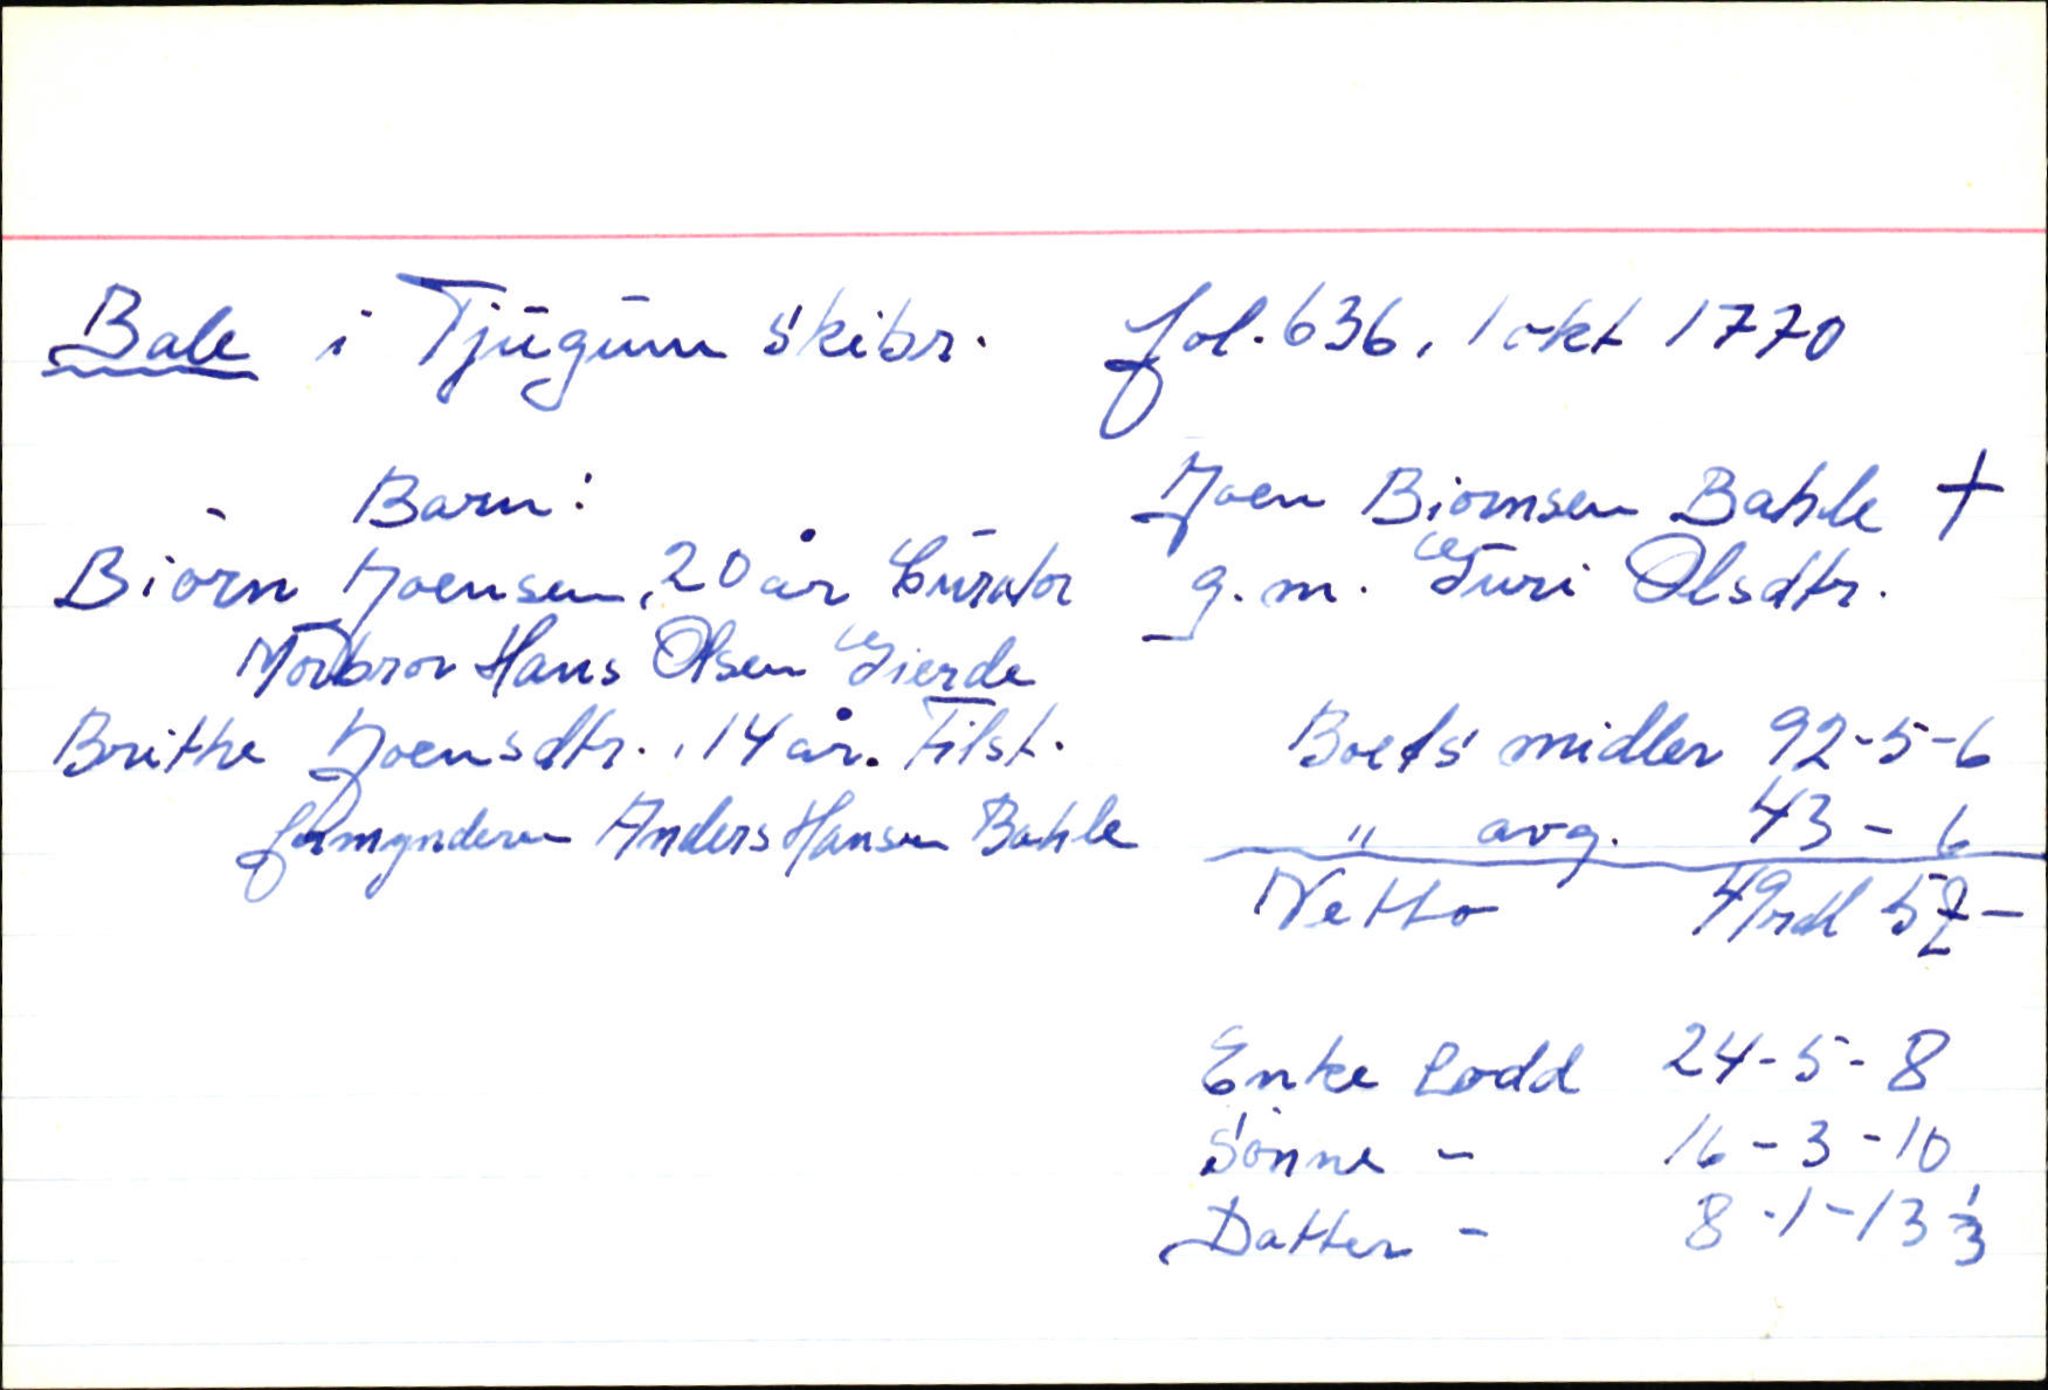 Bale i Tjugum skibr. fol. 636, 1 okt 1770
Barn:
Biørn Joensen, 20 år Curator
Morbror Hans Olsen Gierde
Brithe Joensdtr., 14 år. Tilst.
formynderen Anders Hansen Bahle
Joen Biørnsen Bahle +
g. m. Guri Olsdtr.
Boets midler 92-5-6
" avg. 43 - 6
Netto 49 rdl 5 -
Enke Lodd 24-5-8
Sønne - 16-3-10
Datter - 8-1-13 1/3